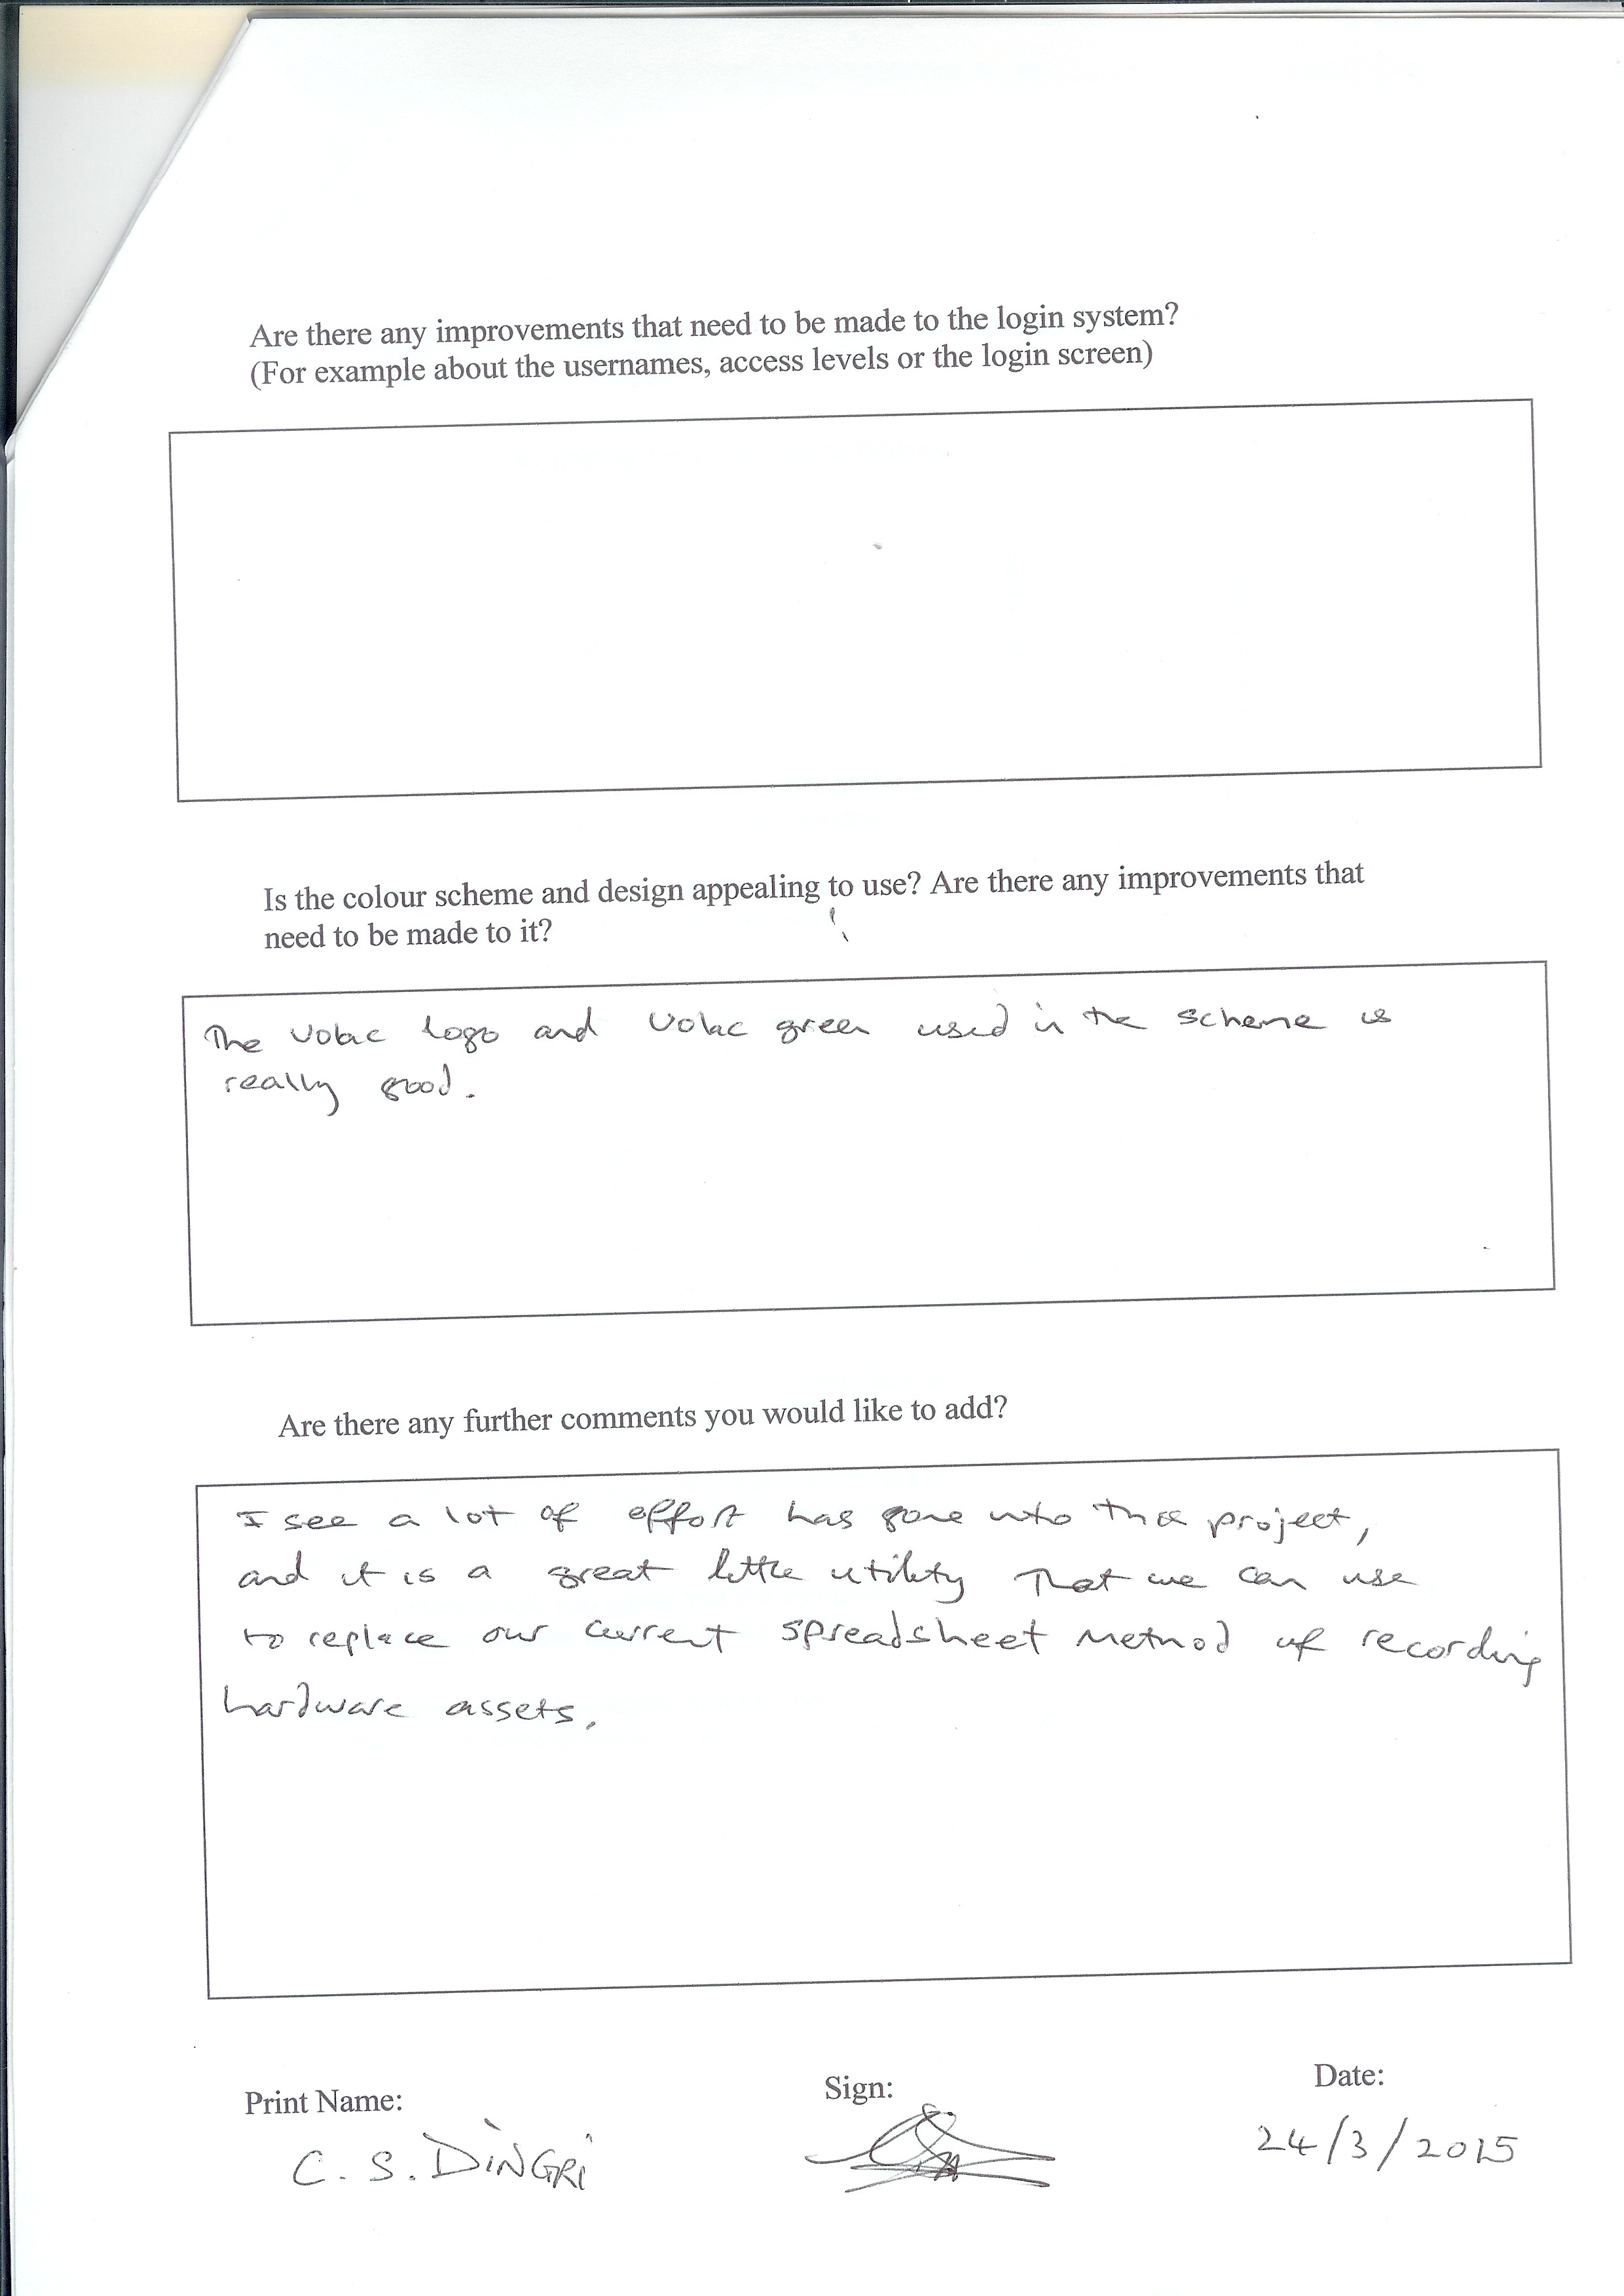 Are there any improvements that need to be made to the login system?
(For example about the usernames, access levels or the login screen)
Is the colour scheme and design appealing to use? Are there any improvements that
need to be made to it?
The Volac logo and Volac green used in the scheme is
really good.
Are there any further comments you would like to add?
I see a lot of effort has gone into this project,
and it is a great little utility that we can use
to replace our current spreadsheet method of recording
hardware assets.
Print Name:
Sign:
Date:
C. S. DINGRI
24/3/2015